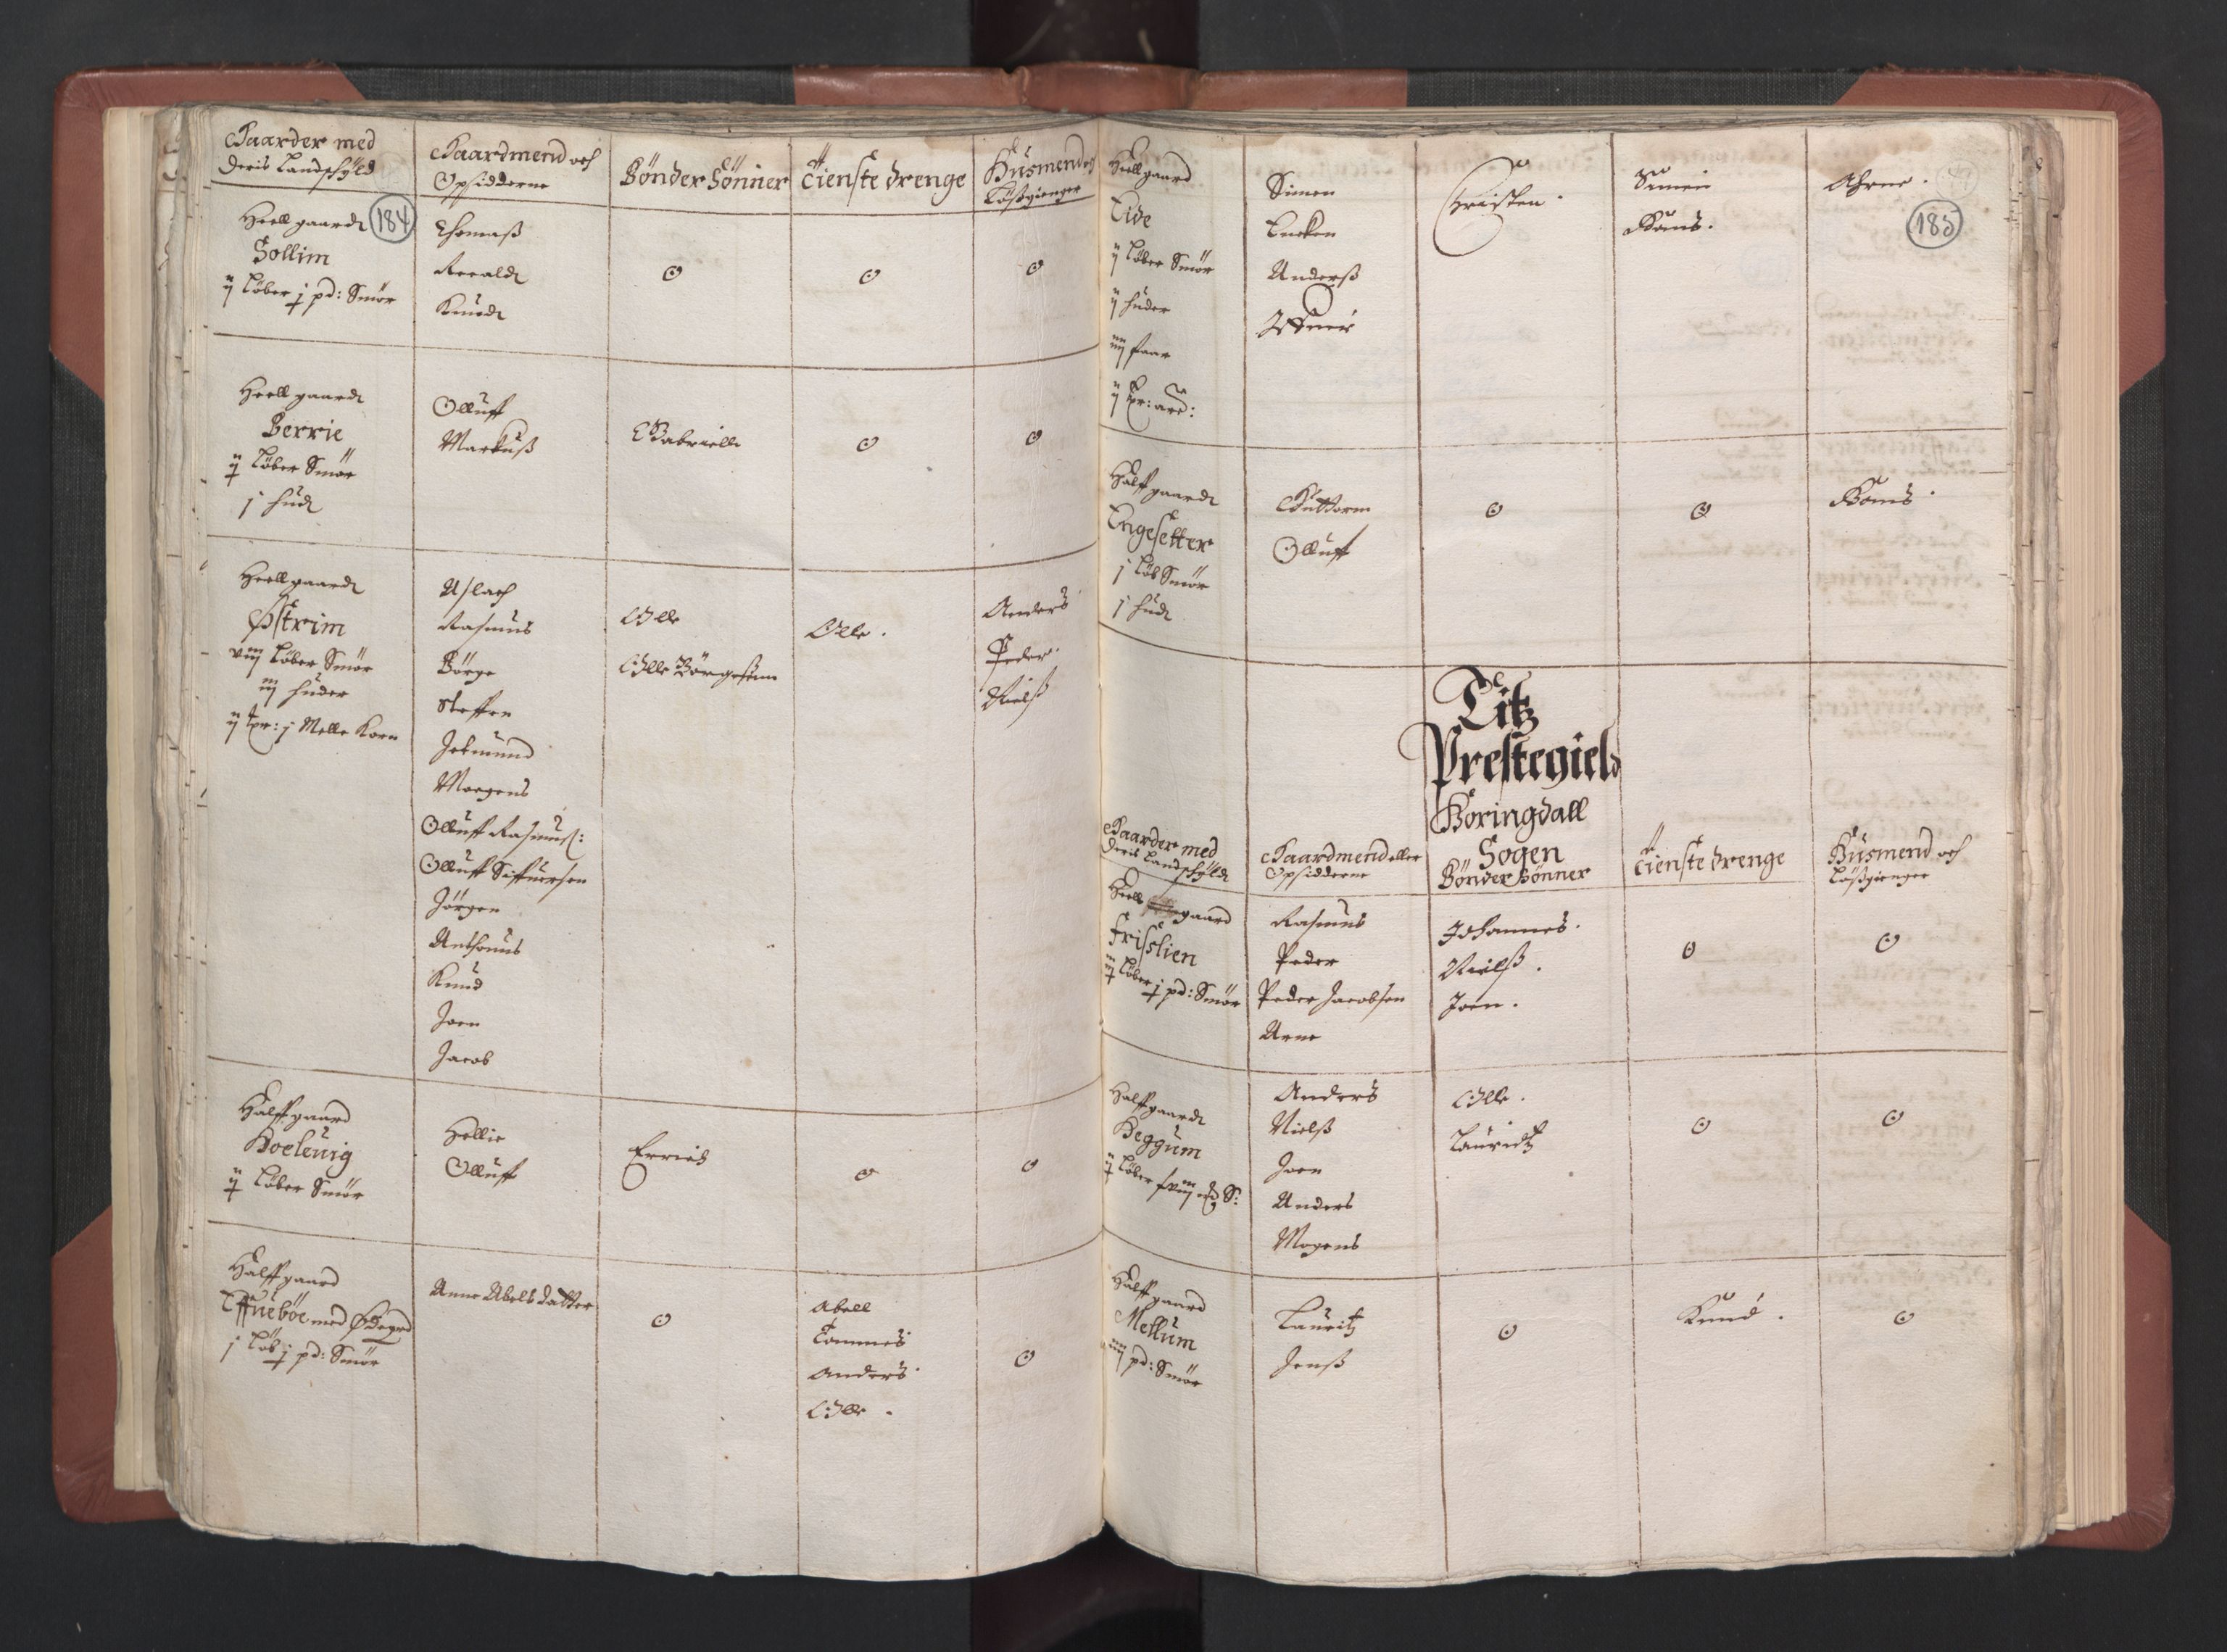 Gaarder med
deris Landschyld
Gaardmend och
Opsidderne
Bönder Sönner
Tienste drenge
Husmend och
Lößgienger
Heell gaard
184
Sollim
ij Löber j pd: Smör
Thomaß
Knud
0
0
0
Heell gaard
Berrie
ij Löber Smör
j hud
Olluff
Markuß
Gabriell
0
0
Heell gaard
Østrim
viij Löber Smör
iij huder
ij tpr: j Melle Korn
Aslach
Rasmus
Börge
Steffen
Jetmund
Mogens
Olluff Rasmuß:
Olluff Siffuersen
Jörgen
Anthonius
Knud
Joen
Jacob
Olle
Olle Börgesenn
Olle.
Anders
Peder
Nielß
Halff gaard
Hoeleuig
ij Löber Smör
Hellie
Olluff
Errich
0
0
Halff gaard
Tffuebøe med Ødegrd
j Löb j pd: Smör
Anne Abels datter
0
Abell
Tommes
Anders
Olle.
0
Heell gaard
Eide
ij Löber Smör
ij huder
iiij faar
Simen
Enken
Anderß
Christen.
Simen
Hans.
Ahrne.
185
Halff gaard
Engesetter
j Löb Smör
j hud
Guttorm
Olluff
0
0
Hans.
Eitz
Prestegield
Horingdall
Sogen
Gaarder med
deris Landschyld
Gaardmend eller
Opsidderne
Bönder Sönner
Tienste drenge
Husmend och
Lößgienger
Heell gaard
Frisslien
iij Löber j pd: Smör
Rasmus
Peder
Peder Jacobsen
Arne
Johannes.
Nielß.
Joen.
0
0
Halff gaard
Heggum
Anders
Nielß
Joen
Anders
Mogens
Olle.
Lauridtz
0
0
Halff gaard
Mellum
iiij pd: Smör
Lauritz
Jenß
0
Knud.
0